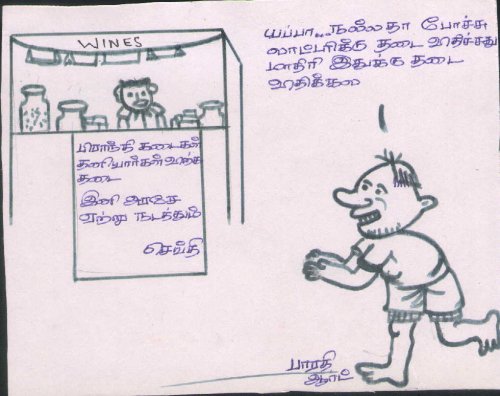 WINES
யப்பா.. நல்லதா போச்சு
லாட்டரிக்கு தடை விதிச்சது
மாதிரி இதுக்கு தடை
விதிக்கல
பிராந்தி கடைகள்
தனியார்கள் விற்க
தடை
இனி அரசே
ஏற்று நடத்தும்
செய்தி
பாரதி
ஆர்ட்